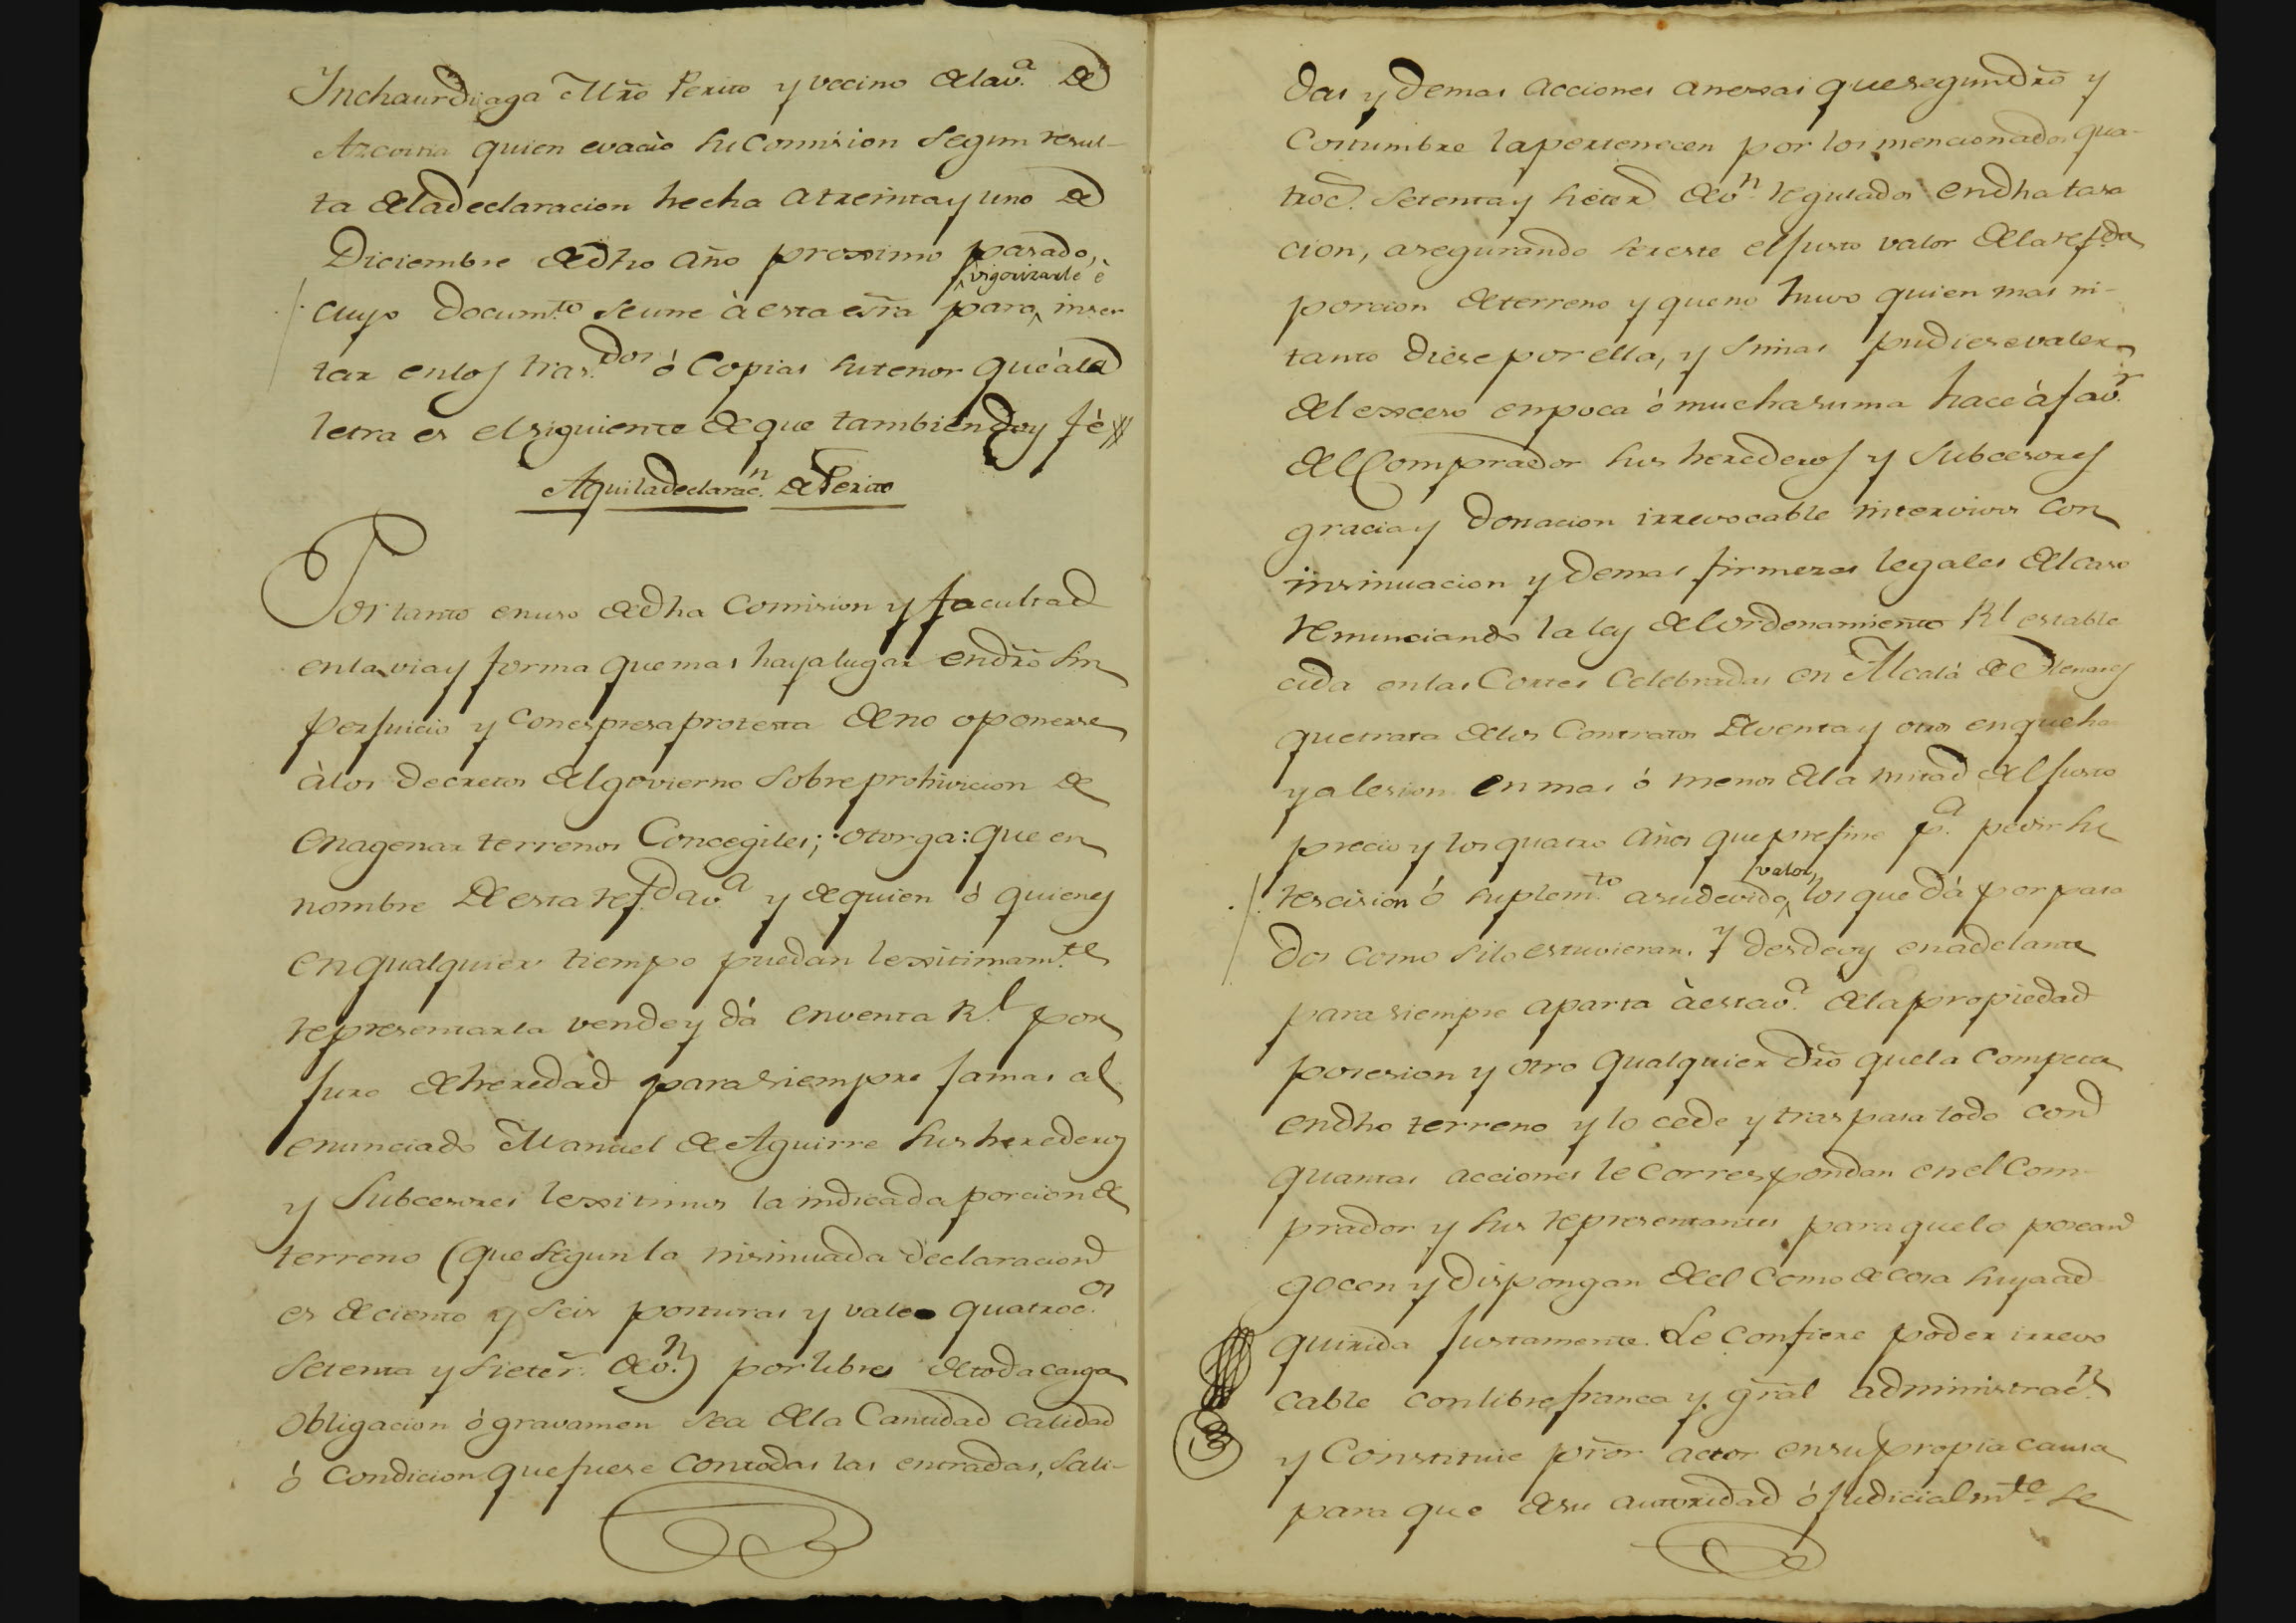 Ynchaurdiaga Mro Perito y vecino de la v.a de
Azcoitia quien evacuò su Comision segun resul-
ta de la declaracion hecha a treinta y uno de
Diciembre de dho año proximo pasado,
vigorizarle è
cuyo Docum.to se une à esta esra para inser
tar en los tras.dos ó Copias su tenor que à la
letra es el siguiente de que tambien doy fè
Aqui la declarac.n de Perito
Por tanto en uso de dha Comision y facultad
en la via y forma que mas haya lugar en dro sin
perjuicio y con espresa protesta de no oponerse
à los decretos del govierno sobre prohivicion de
enagenar terrenos Concegiles; otorga: que en
nombre de esta ref.da v.a y de quien ó quienes
en qualquier tiempo puedan lexitimam.te
representarla vende y dá en venta Rl por
juro de heredad para siempre jamas al
enunciado Manuel de Aguirre sus herederos
y Subcesores lexitimos la indicada porcion de
terreno (que segun la insinuada declaracion
es de ciento y seis posturas y vale quatroc.os
setenta y siete r.s de v.n) por libre de toda carga
obligacion ó gravamen sea de la Cantidad calidad
ó condicion que fuese con todas las entradas, sali-
das y demas acciones anexas que segun dro y
Costumbre la pertenecen por los mencionados qua-
troc.s setenta y siete r.s de v.n regulados en dha tasa
cion, asegurando ser este el justo valor de la ref.da
porcion de terreno y que no huvo quien mas ni-
tanto diese por ella, y si mas pudiese valer
del exceso en poca ó mucha suma hace à fav.r
del Comprador sus herederos y Subcesores
gracia y donacion irrevocable intervivos con
insinuacion y demas firmezas legales del caso
renunciando la ley del ordenamiento Rl estable
cida en las Cortes Celebradas en Alcalá de Henares
que trata de los Contratos de venta y otros en que ha
ya lesion en mas ó menos de la mitad del justo
precio y los quatro años que prefine p.a pedir su
valor,
rescision ó suplem.to a su devido los que dá por pasa
dos como si lo estuvieran. Y desde oy en adelante
para siempre aparta à esta v.a de la propiedad
posesion y otro qualquier dro que la competa
en dho terreno y lo cede y traspasa todo con
quantas acciones le correspondan en el Com
prador y sus representantes para que lo posean
gocen y dispongan de el como de cosa suya ad
quirida justamente. Le confiere poder irrevo
cable con libre franca y gral administrac.n
y Constituie pror actor en su propia causa
para que de su autoridad ó judicialm.te se